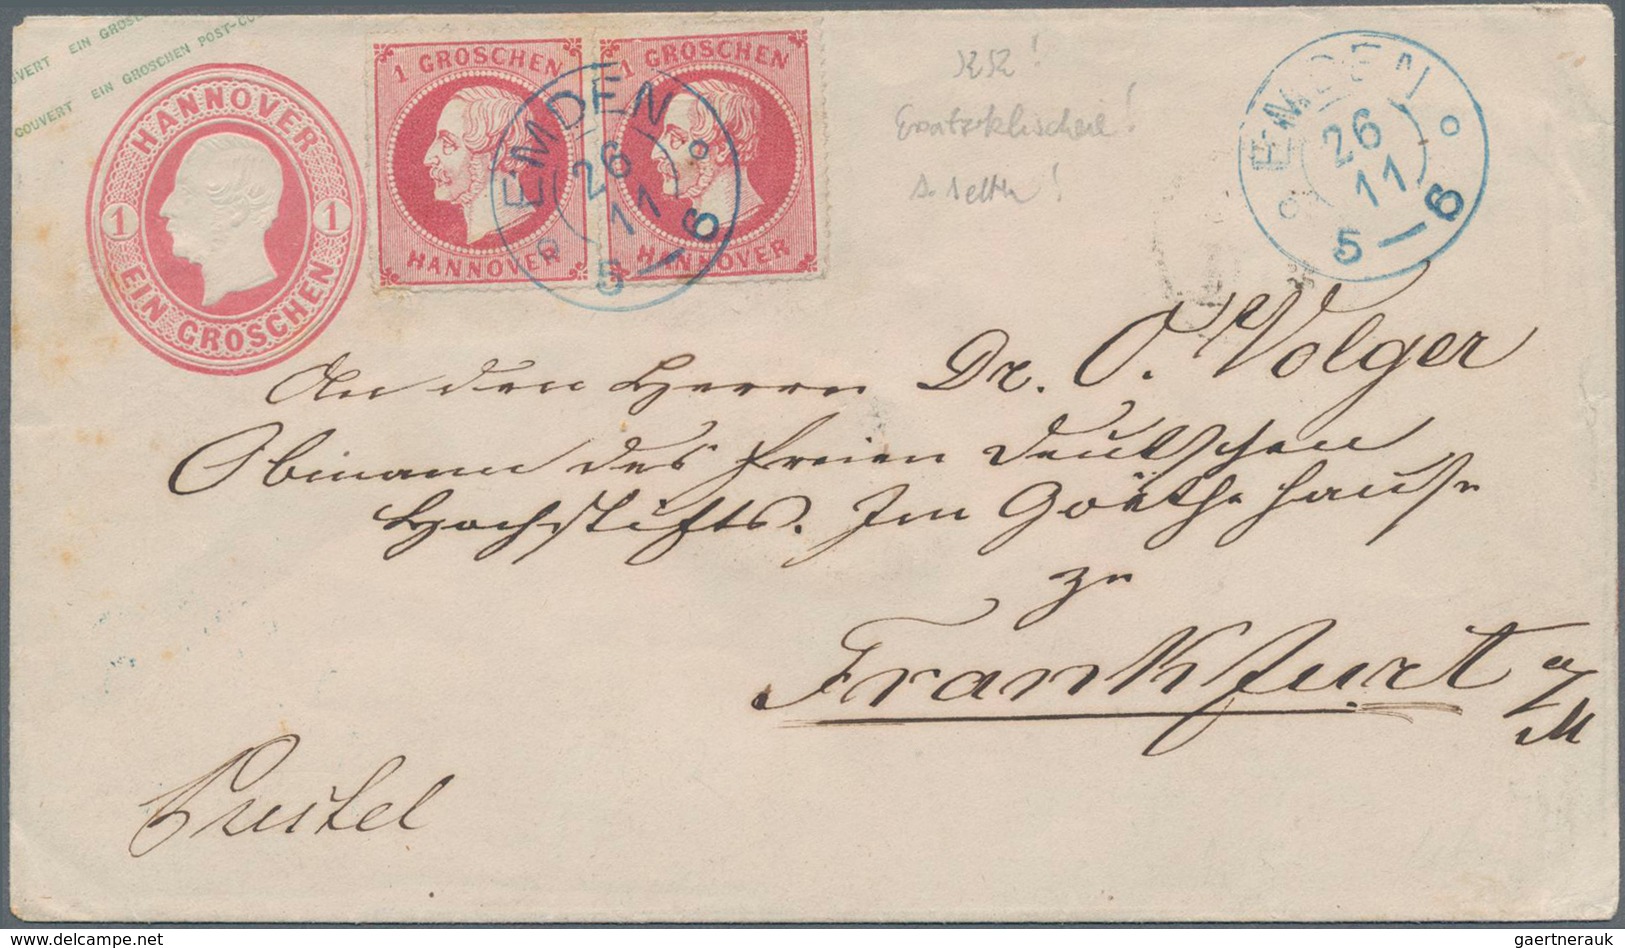 COUVERT EIN GROSCHEN
COUVERT EIN GROSCHEN POST-COUVERT
HANNOVER
1 1
EIN GROSCHEN
1 GROSCHEN
HANNOVER
1 GROSCHEN
HANNOVER
EMDEN
26
11
5—6
Ersatzklischee!
s. selten!
EMDEN
26
11
5—6
An den Herrn Dr. O. Volger
Obmann des freien deutschen
Hochstifts. Im Goethehause
zu
Frankfurt a/M
© www.delcampe.net
gaertnerauk